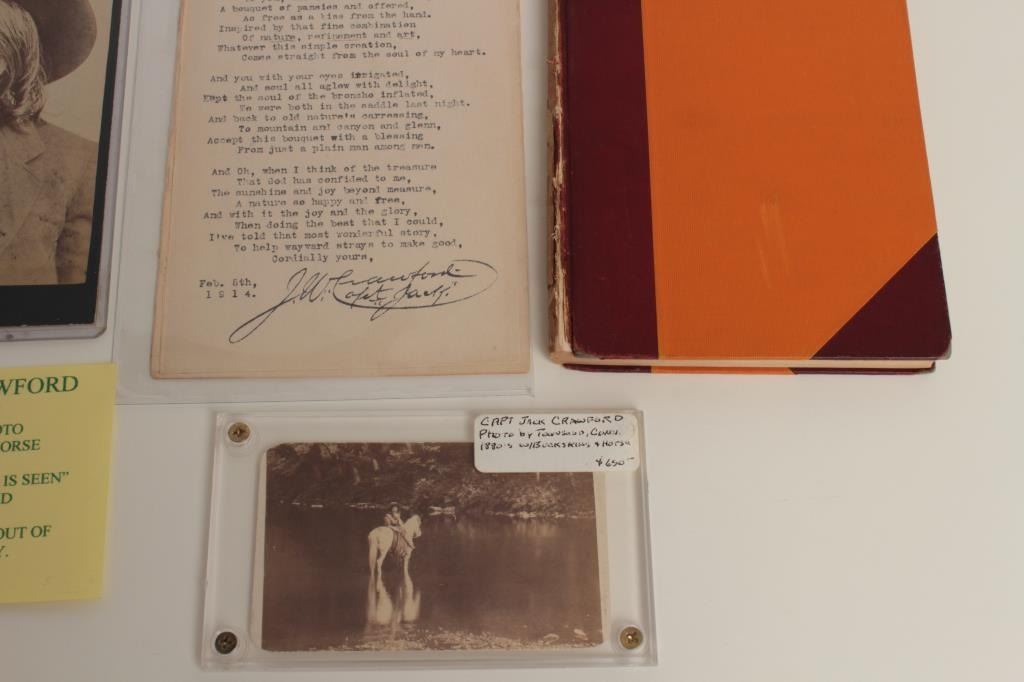 A bouquet of pansies and offered,
As free as a kiss from the hand.
Inspired by that fine combination
Of nature, refinement and art,
Whatever this simple creation,
Comes straight from the soul of my heart.
And you with your eyes irrigated,
And soul all aglow with delight,
Kept the soul of the broncho inflated,
We were both in the saddle last night.
And back to old nature's carressing,
To mountain and canyon and glenn,
Accept this bouquet with a blessing
From just a plain man among men.
And Oh, when I think of the treasure
That God has confided to me,
The sunshine and joy beyond measure,
A nature so happy and free,
And with it the joy and the glory,
When doing the best that I could,
I've told that most wonderful story,
To help wayward strays to make good,
Cordially yours,
Feb. 5th,
1914.
J.W. Crawford
Capt. Jack
WFORD
OTO
ORSE
IS SEEN"
D
OUT OF
Y.
CAPT JACK CRAWFORD
Photo by Townsend, Conn.
1880's w/Buckskins & Horse
$650-